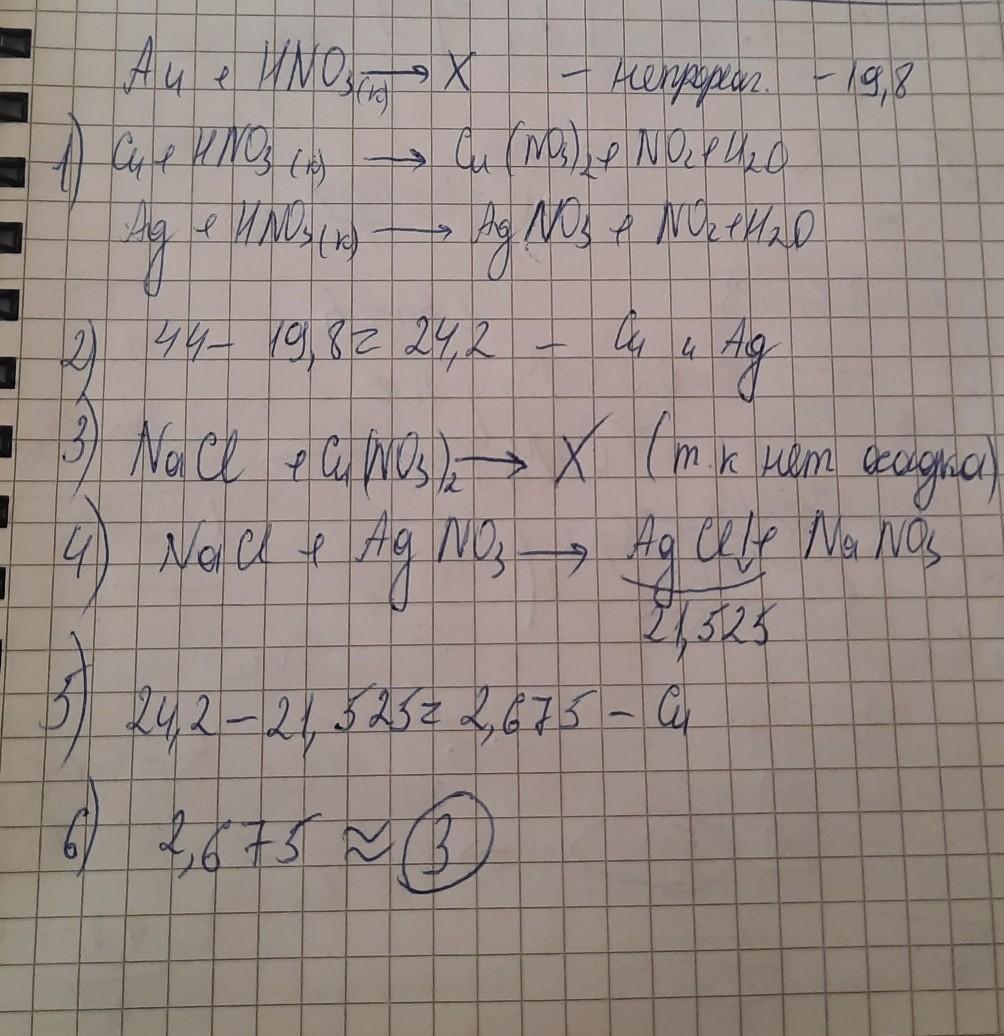 Au + HNO₃(к) → X – непрореаг. – 19,8
1) Cu + HNO₃ (к) → Cu (NO₃)₂ + NO₂ + H₂O
Ag + HNO₃(к) → Ag NO₃ + NO₂ + H₂O
2) 44 – 19,8 = 24,2 – Cu и Ag
3) NaCl + Cu(NO₃)₂ → X (т.к нет осадка)
4) NaCl + Ag NO₃ → Ag Cl↓ + Na NO₃
21,525
5) 24,2 – 21,525 = 2,675 – Cu
6) 2,675 ≈ 3